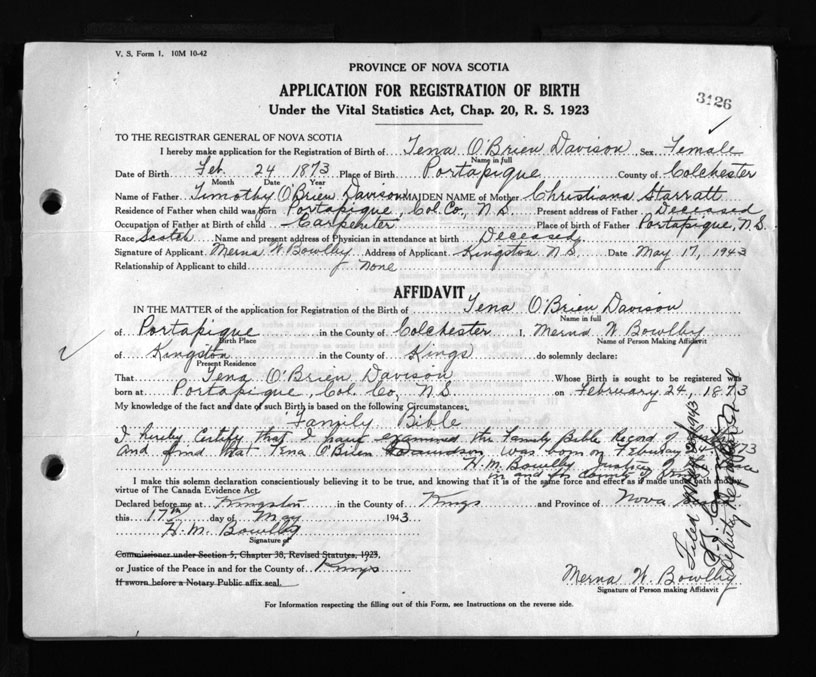 V. S. Form 1. 10M 10-42
PROVINCE OF NOVA SCOTIA
APPLICATION FOR REGISTRATION OF BIRTH
3126
Under the Vital Statistics Act, Chap. 20, R. S. 1923
TO THE REGISTRAR GENERAL OF NOVA SCOTIA
I hereby make application for the Registration of Birth of Tena O'Brien Davison, Sex Female
Name in full
Date of Birth Feb. 24 1873 Place of Birth Portapique County of Colchester
Month Date Year
Name of Father Timothy O'Brien Davison MAIDEN NAME of Mother Christiana Starratt
Residence of Father when child was born Portapique, Col. Co., N.S. Present address of Father Deceased
Occupation of Father at Birth of child Carpenter Place of birth of Father Portapique, N.S.
Race Scotch Name and present address of Physician in attendance at birth Deceased
Signature of Applicant Merna W. Bowlby Address of Applicant Kingston N.S. Date May 17, 1943
Relationship of Applicant to child None
AFFIDAVIT
IN THE MATTER of the application for Registration of the Birth of Tena O'Brien Davison
Name in full
of Portapique in the County of Colchester I, Merna W. Bowlby
Birth Place Name of Person Making Affidavit
of Kingston in the County of Kings do solemnly declare:
Present Residence
That Tena O'Brien Davison Whose Birth is sought to be registered was
born at Portapique, Col. Co, N.S. on February 24, 1873
My knowledge of the fact and date of such Birth is based on the following Circumstances:
Family Bible
I hereby Certify that I have examined the Family Bible Record of
and find that Tena O'Brien Davidson was born on Febuary 24 1873
H. M. Bowlby Justice of
in and for County of Kings
I make this solemn declaration conscientiously believing it to be true, and knowing that it is of the same force and effect as if made under oath and by
virtue of The Canada Evidence Act.
Declared before me at Kingston in the County of Kings and Province of Nova
this 17th day of May 1943
H. M. Bowlby
Signature of
Commissioner under Section 5, Chapter 38, Revised Statutes, 1923,
or Justice of the Peace in and for the County of Kings
If sworn before a Notary Public affix seal.
Merna W. Bowlby
Signature of Person making Affidavit
For Information respecting the filling out of this Form, see Instructions on the reverse side.
Filed
Deputy Registrar